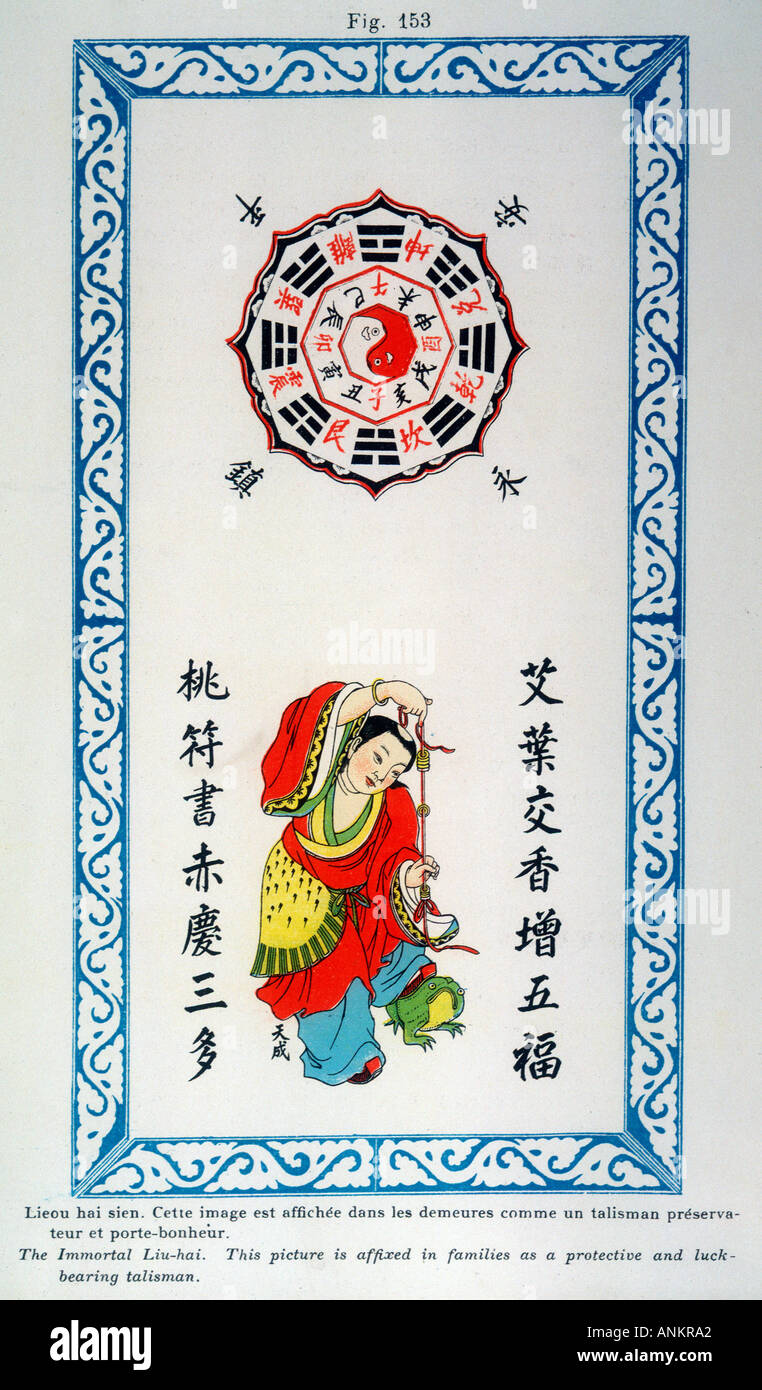 Fig. 153
平
安
離坤兌乾坎艮震巽
午未申酉戌亥子丑寅卯辰巳
鎮
永
艾葉交香增五福
桃符書赤慶三多
天成
Lieou hai sien. Cette image est affichée dans les demeures comme un talisman préserva-
teur et porte-bonheur.
The Immortal Liu-hai. This picture is affixed in families as a protective and luck-
bearing talisman.
alamy
Image ID: ANKRA2
www.alamy.com